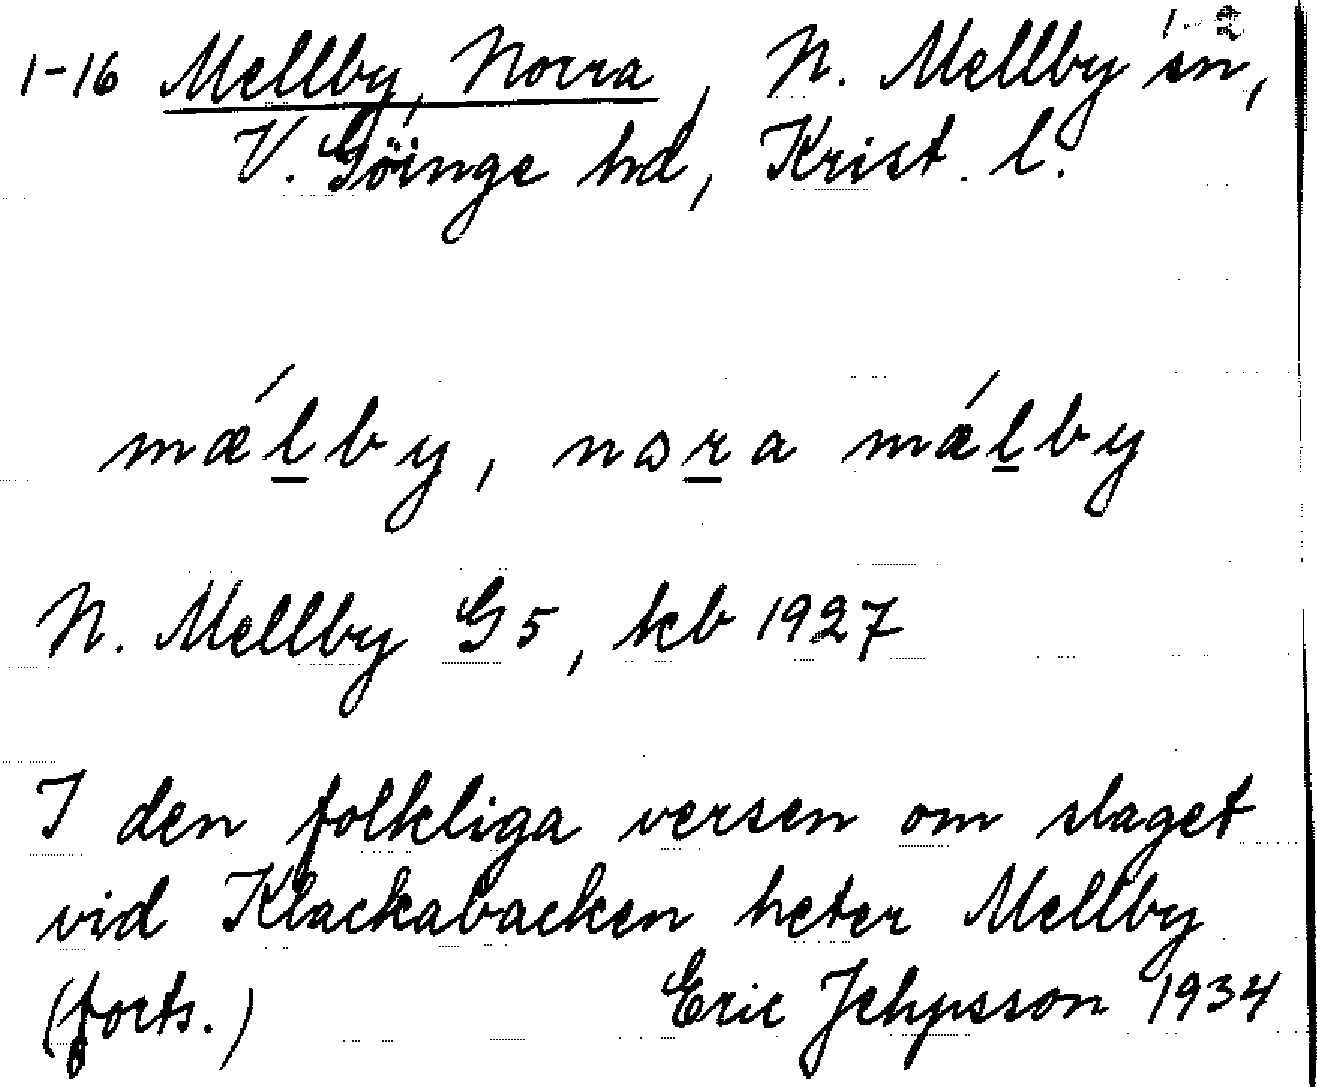 1-16 Mellby, Norra, N. Mellby sn,
V. Göinge hd, Krist. l.
mǽl̲by, nɔr̲a mǽl̲by
N. Mellby G5, kb 1927
I den folkliga versen om slaget
vid Klackabacken heter Mellby
(forts.) Eric Jehpsson 1934